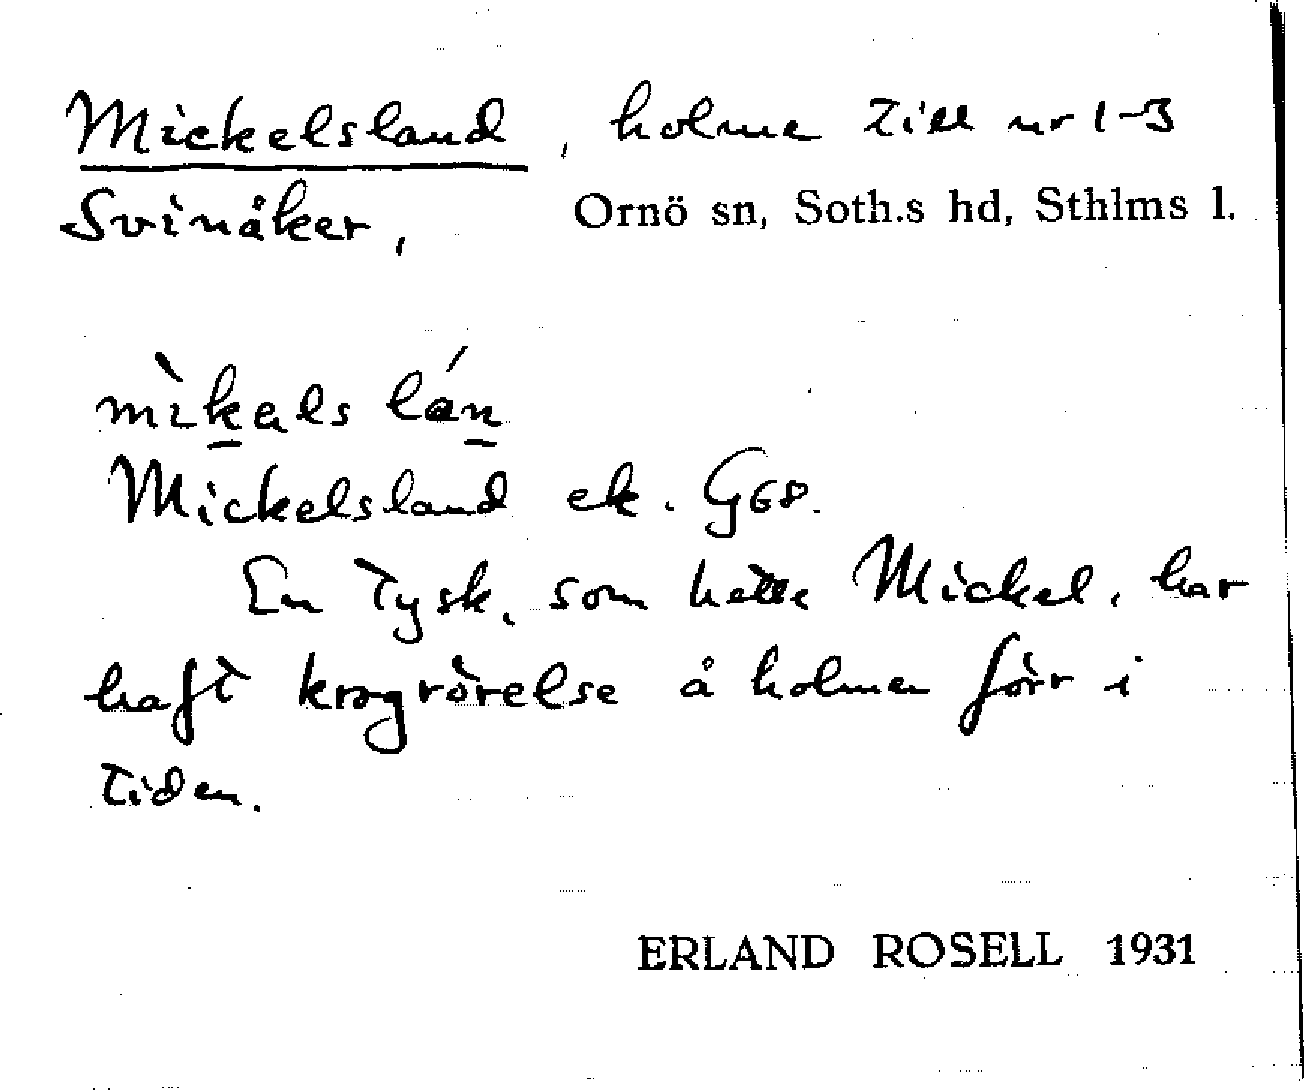 Mickelsland, holme till nr 1-3
Svinåker, Ornö sn, Soth.s hd, Sthlms l.
mìkəls lán
Mickelsland ek. G68.
En tysk, som hette Mickel, har
haft krogrörelse å holmen förr i
tiden.
ERLAND ROSELL 1931